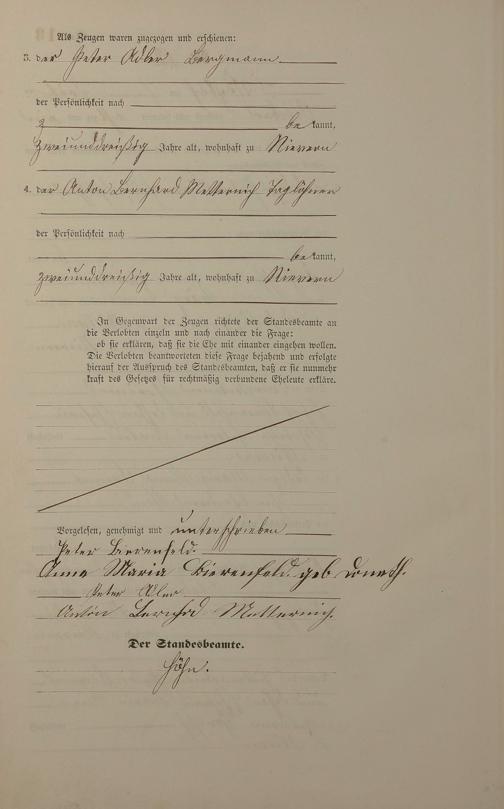 Als Zeugen waren zugezogen und erschienen:
3. der Peter Adler Bergmann
der Persönlichkeit nach
be kannt,
zweiunddreißig Jahre alt, wohnhaft zu Nievern
4. der Anton Bernhard Metternich Taglöhner
der Persönlichkeit nach
be kannt,
zweiunddreißig Jahre alt, wohnhaft zu Nievern
In Gegenwart der Zeugen richtete der Standesbeamte an
die Verlobten einzeln und nach einander die Frage:
ob sie erklären, daß sie die Ehe mit einander eingehen wollen.
Die Verlobten beantworteten diese Frage bejahend und erfolgte
hierauf der Ausspruch des Standesbeamten, daß er sie nunmehr
kraft des Gesetzes für rechtmäßig verbundene Eheleute erkläre.
Vorgelesen, genehmigt und unterschrieben
Peter
Anna Maria Bierenfeld geb
Peter Adler
Anton Bernhd Metternich.
Der Standesbeamte.
Höhn.